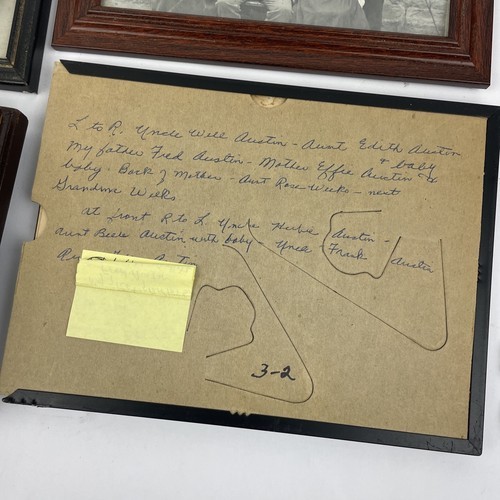 L to R. Uncle Will Austin - Aunt Edith Austin
& baby
My father Fred Austin - Mother Effie Austin &
baby - Back of Mother - Aunt Rose Weeks - next
Grandma Weeks
at front R to L Uncle Herbie Austin -
Aunt Belle Austin with baby - Uncle Frank Austin
3-2